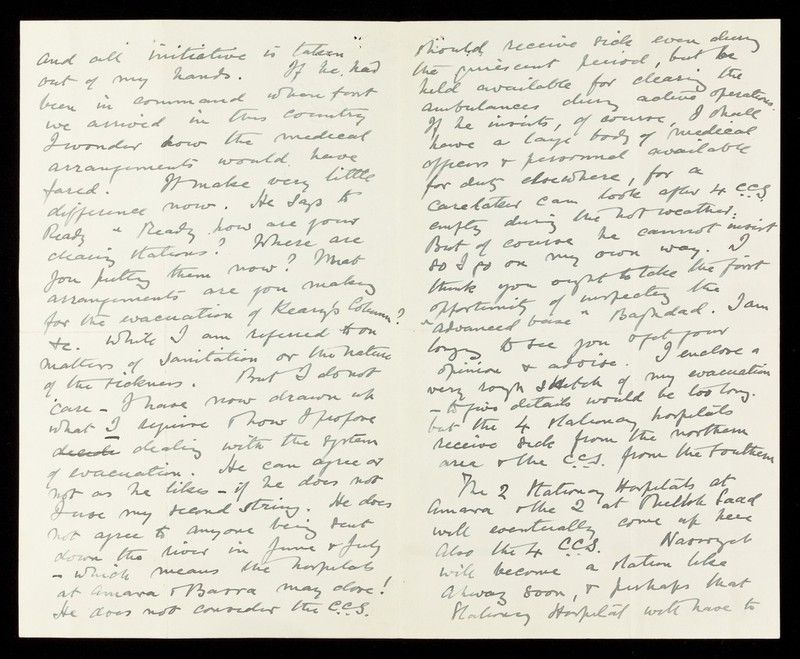 and all initiative is taken
out of my hands. If he had
been in command when first
we arrived in this country
I wonder how the medical
arrangements would have
fared. It make very little
difference now. He says to
Ready "Ready how are your
clearing stations? Where are
you putting them now? What
arrangements are you making
for the evacuation of Keary's Column?
&c. While I am referred to on
matters of sanitation or the nature
of the sickness. But I do not
care – I have now drawn up
what I require & how I propose
dealing with the system
of evacuation. He can agree or
not as he likes – if he does not
I use my second string. He does
not agree to anyone being sent
down the river in June & July
– which means the hospitals
at Amara & Basra may close!
He does not consider the C.C.S.
should receive sick even during
the quiescent period, but be
held available for clearing the
ambulances during active operations.
If he insists, of course, I shall
have a large body of medical
officers & personnel available
for duty elsewhere, for a
caretaker can look after 4 C.C.S.
empty during the hot weather:
But of course he cannot insist
so I go on my own way. I
think you ought to take the first
opportunity of inspecting the
"advanced base" Baghdad. I am
longing to see you & get your
opinion & advice. I enclose a
very rough sketch of my evacuation
– to give details would be too long.
but the 4 stationary hospitals
receive sick from the northern
area & the C.C.S. from the southern
The 2 Stationary Hospitals at
Amara & the 2 at Sheikh Saad
will eventually come up here
also the 4 C.C.S. Nasriyeh
will become a station like
Ahwaz soon, & perhaps that
Stationary Hospital will have to